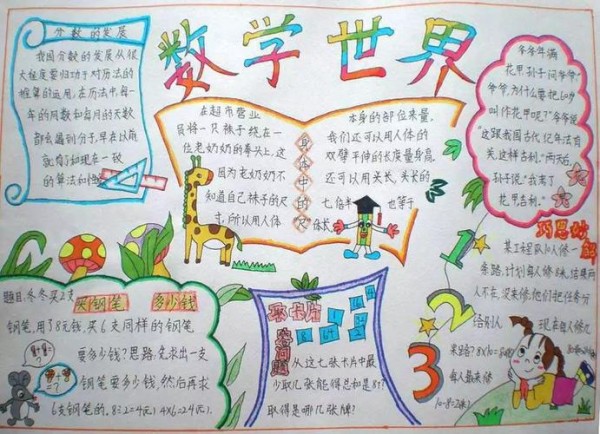 数学世界
分数的发展
我国分数的发展从很
大程度要归功于对历法的
推算的运用,在历法中,每一
年的周数和每月的天数
都会遇到分子,早在以前
就有了和现在一致
的算法如
在超市营业
员将一只袜子绕在一
位老奶奶的拳头上,这
因为老奶奶不
知道自己袜子的尺
寸,所以用人体
身体中的“尺”
本身的部位来量。
我们还可以用人体的
双臂平伸的长度量身高,
还可以用头长,头长的
七倍 也等于
体长
爷爷年满
花甲,孙子问爷爷:“
爷爷,为什么要把60岁
叫作花甲呢?”爷爷说:
“这跟我国古代纪年法有
关,这样吉利。”两天后,
孙子说:“我长了
花甲
题目:冬冬买2支
买钢笔 多少钱
钢笔,用了8元钱,买6支同样的钢笔,
要多少钱?思路,先求出一支
钢笔要多少钱,然后再求
6支钢笔的。8÷2=4(元),4×6=24(元)。
从这七张卡片中最
少取几张能得总和是8?
取得是哪几张牌?
1
2
3
巧思妙解
某工程队10人修一
条路,计划每人修8米,结果两
人不在,没来修,他们把任务分
给别人 现在每人修几
米路?
每人最来修
10-8=2(米)